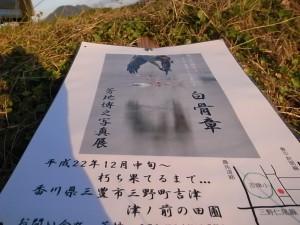 白骨章
菩地博之写真展
平成22年12月中旬～
朽ち果てるまで…
香川県三豊市三野町吉津
津ノ前の田圃
三野仁尾線
お問い合わせ